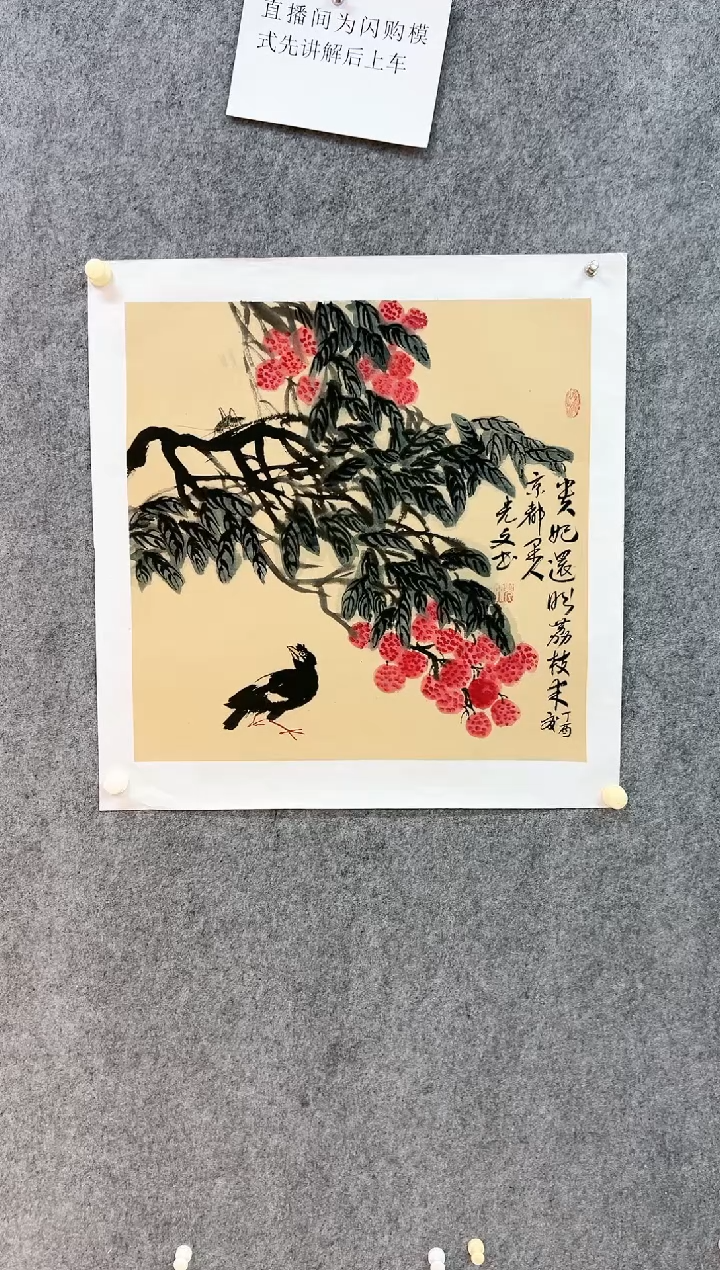 直播间为闪购模
式先讲解后上车
贵妃还盼荔枝来
丁酉
京都墨人
光文